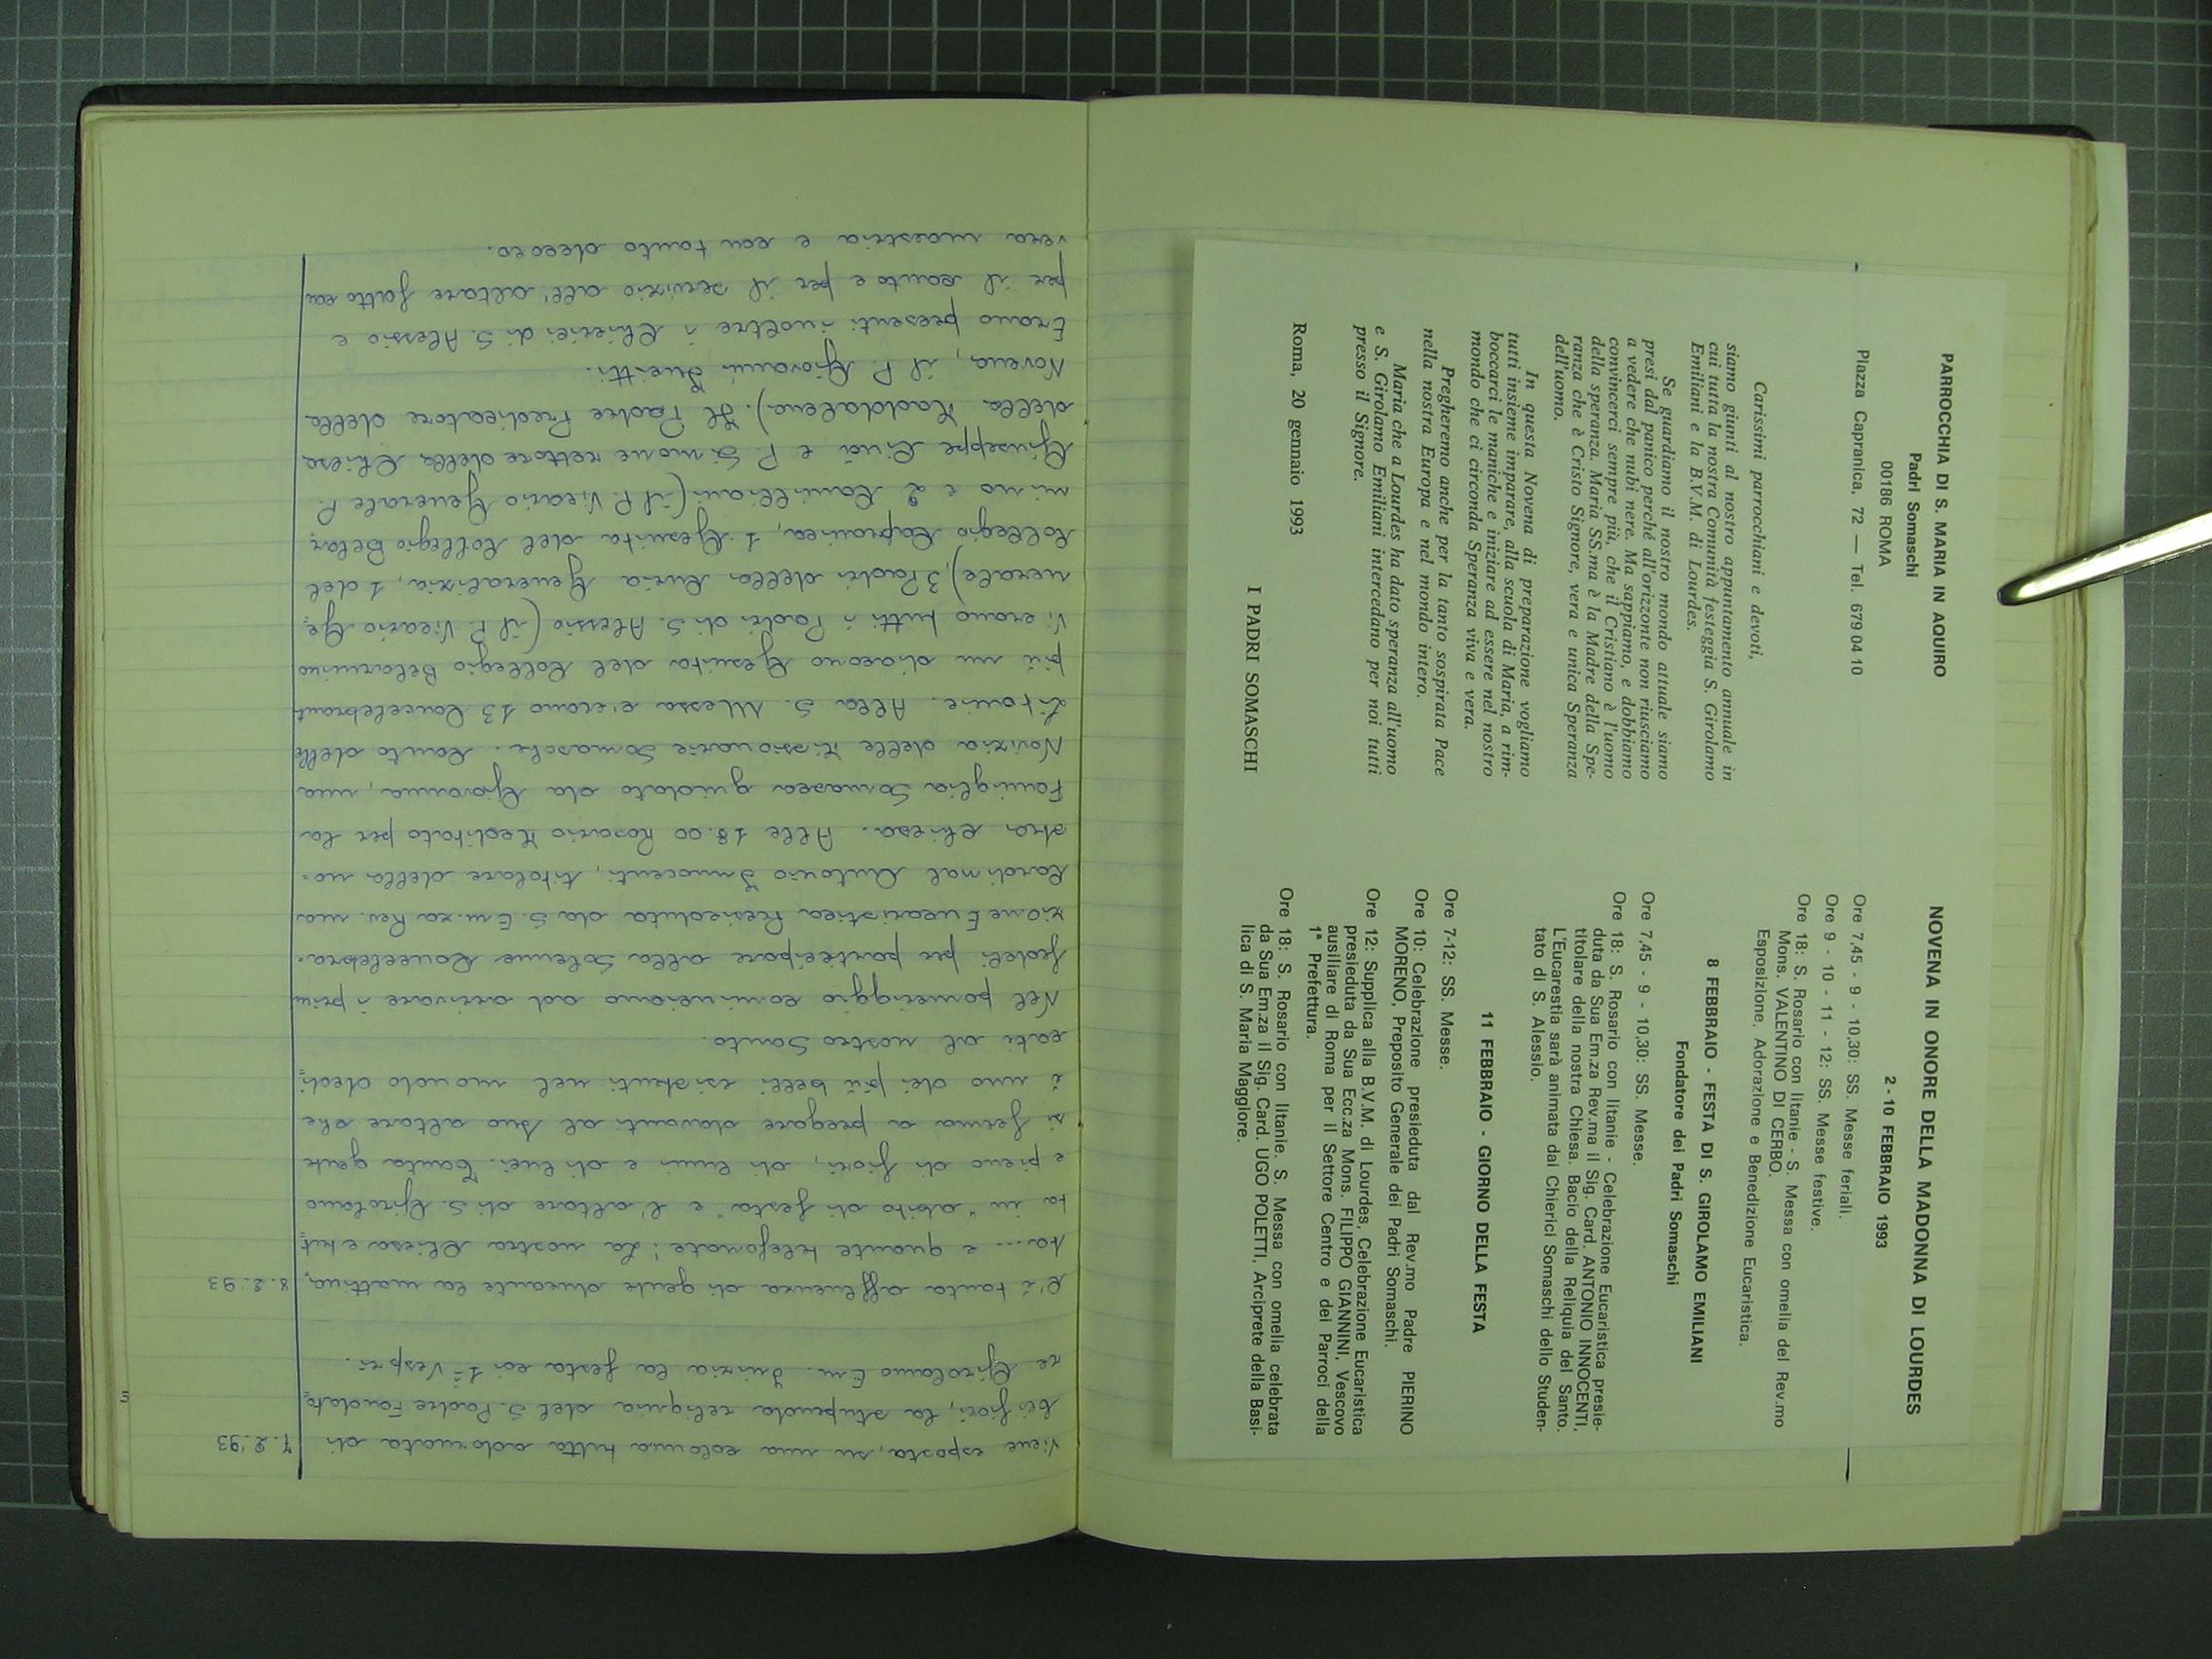 7.2.'93 Viene esposta, su una colonna tutta adornata di
bei fiori, la stupenda reliquia del S. Padre Fondato=
re Girolamo Em. Inizia la festa coi 1i Vespri.
8.2.'93 C'è tanta affluenza di gente durante la mattina=
ta... e quante telefonate! La nostra Chiesa è tut=
ta in "abito di festa" e l'altare di S. Girolamo
è pieno di fiori, di lumi e di luci. Tanta gente
si ferma a pregare davanti al suo altare che
è uno dei più belli esistenti nel mondo dedi=
cati al nostro Santo.
Nel pomeriggio cominciano ad arrivare i primi
fedeli per partecipare alla Solenne Concelebra=
zione Eucaristica Presieduta da S. Em.za Rev.ma
Cardinal Antonio Innocenti, titolare della no=
stra Chiesa. Alle 18.00 Rosario Meditato per la
Famiglia Somasca guidato da Giovanna, una
Novizia delle Missionarie Somasche. Canto delle
Litanie. Alla S. Messa c'erano 13 Concelebranti
più un diacono Gesuita del Collegio Belarmino
Vi erano tutti i Padri di S. Alessio (il P. Vicario Ge=
nerale), 3 Padri della Curia Generalizia, 1 del
Collegio Capranica, 1 Gesuita del Collegio Belar=
mino e 2 Camilliani (il P. Vicario Generale P.
Giuseppe Cinà e P. Simone rettore della Chiesa
della Maddalena). Il Padre Predicatore della
Novena, il P. Giovanni
Erano presenti inoltre i Chierici di S. Alessio e
per il canto e per il servizio all'altare fatto con
vera maestria e con tanto decoro.
PARROCCHIA DI S. MARIA IN AQUIRO
Padri Somaschi
00186 ROMA
Piazza Capranica, 72 — Tel. 679 04 10
Carissimi parrocchiani e devoti,
siamo giunti al nostro appuntamento annuale in
cui tutta la nostra Comunità festeggia S. Girolamo
Emiliani e la B.V.M. di Lourdes.
Se guardiamo il nostro mondo attuale siamo
presi dal panico perché all'orizzonte non riusciamo
a vedere che nubi nere. Ma sappiamo, e dobbiamo
convincerci sempre più, che il Cristiano è l'uomo
della speranza. Maria SS.ma è la Madre della Spe-
ranza che è Cristo Signore, vera e unica Speranza
dell'uomo.
In questa Novena di preparazione vogliamo
tutti insieme imparare, alla scuola di Maria, a rim-
boccarci le maniche e iniziare ad essere nel nostro
mondo che ci circonda Speranza viva e vera.
Pregheremo anche per la tanto sospirata Pace
nella nostra Europa e nel mondo intero.
Maria che a Lourdes ha dato speranza all'uomo
e S. Girolamo Emiliani intercedano per noi tutti
presso il Signore.
Roma, 20 gennaio 1993
I PADRI SOMASCHI
NOVENA IN ONORE DELLA MADONNA DI LOURDES
2 - 10 FEBBRAIO 1993
Ore 7,45 - 9 - 10,30: SS. Messe feriali.
Ore 9 - 10 - 11 - 12: SS. Messe festive.
Ore 18: S. Rosario con litanie - S. Messa con omelia del Rev.mo
Mons. VALENTINO DI CERBO.
Esposizione, Adorazione e Benedizione Eucaristica.
8 FEBBRAIO - FESTA DI S. GIROLAMO EMILIANI
Fondatore dei Padri Somaschi
Ore 7,45 - 9 - 10,30: SS. Messe.
Ore 18: S. Rosario con litanie - Celebrazione Eucaristica presie-
duta da Sua Em.za Rev.ma il Sig. Card. ANTONIO INNOCENTI,
titolare della nostra Chiesa. Bacio della Reliquia del Santo.
L'Eucarestia sarà animata dai Chierici Somaschi dello Studen-
tato di S. Alessio.
11 FEBBRAIO - GIORNO DELLA FESTA
Ore 7-12: SS. Messe.
Ore 10: Celebrazione presieduta dal Rev.mo Padre PIERINO
MORENO, Preposito Generale dei Padri Somaschi.
Ore 12: Supplica alla B.V.M. di Lourdes, Celebrazione Eucaristica
presieduta da Sua Ecc.za Mons. FILIPPO GIANNINI, Vescovo
ausiliare di Roma per il Settore Centro e dei Parroci della
1ª Prefettura.
Ore 18: S. Rosario con litanie. S. Messa con omelia celebrata
da Sua Em.za il Sig. Card. UGO POLETTI, Arciprete della Basi-
lica di S. Maria Maggiore.